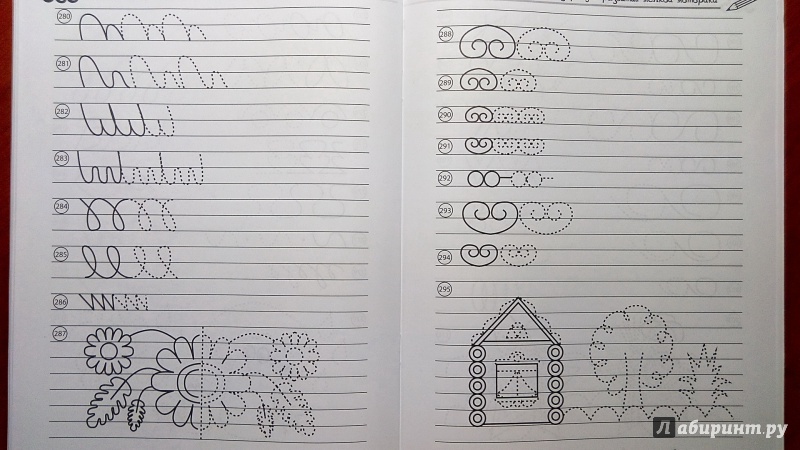 280
281
282
283
284
285
286
287
развития мелкой моторики
288
289
290
291
292
293
294
295
Лабиринт.ру